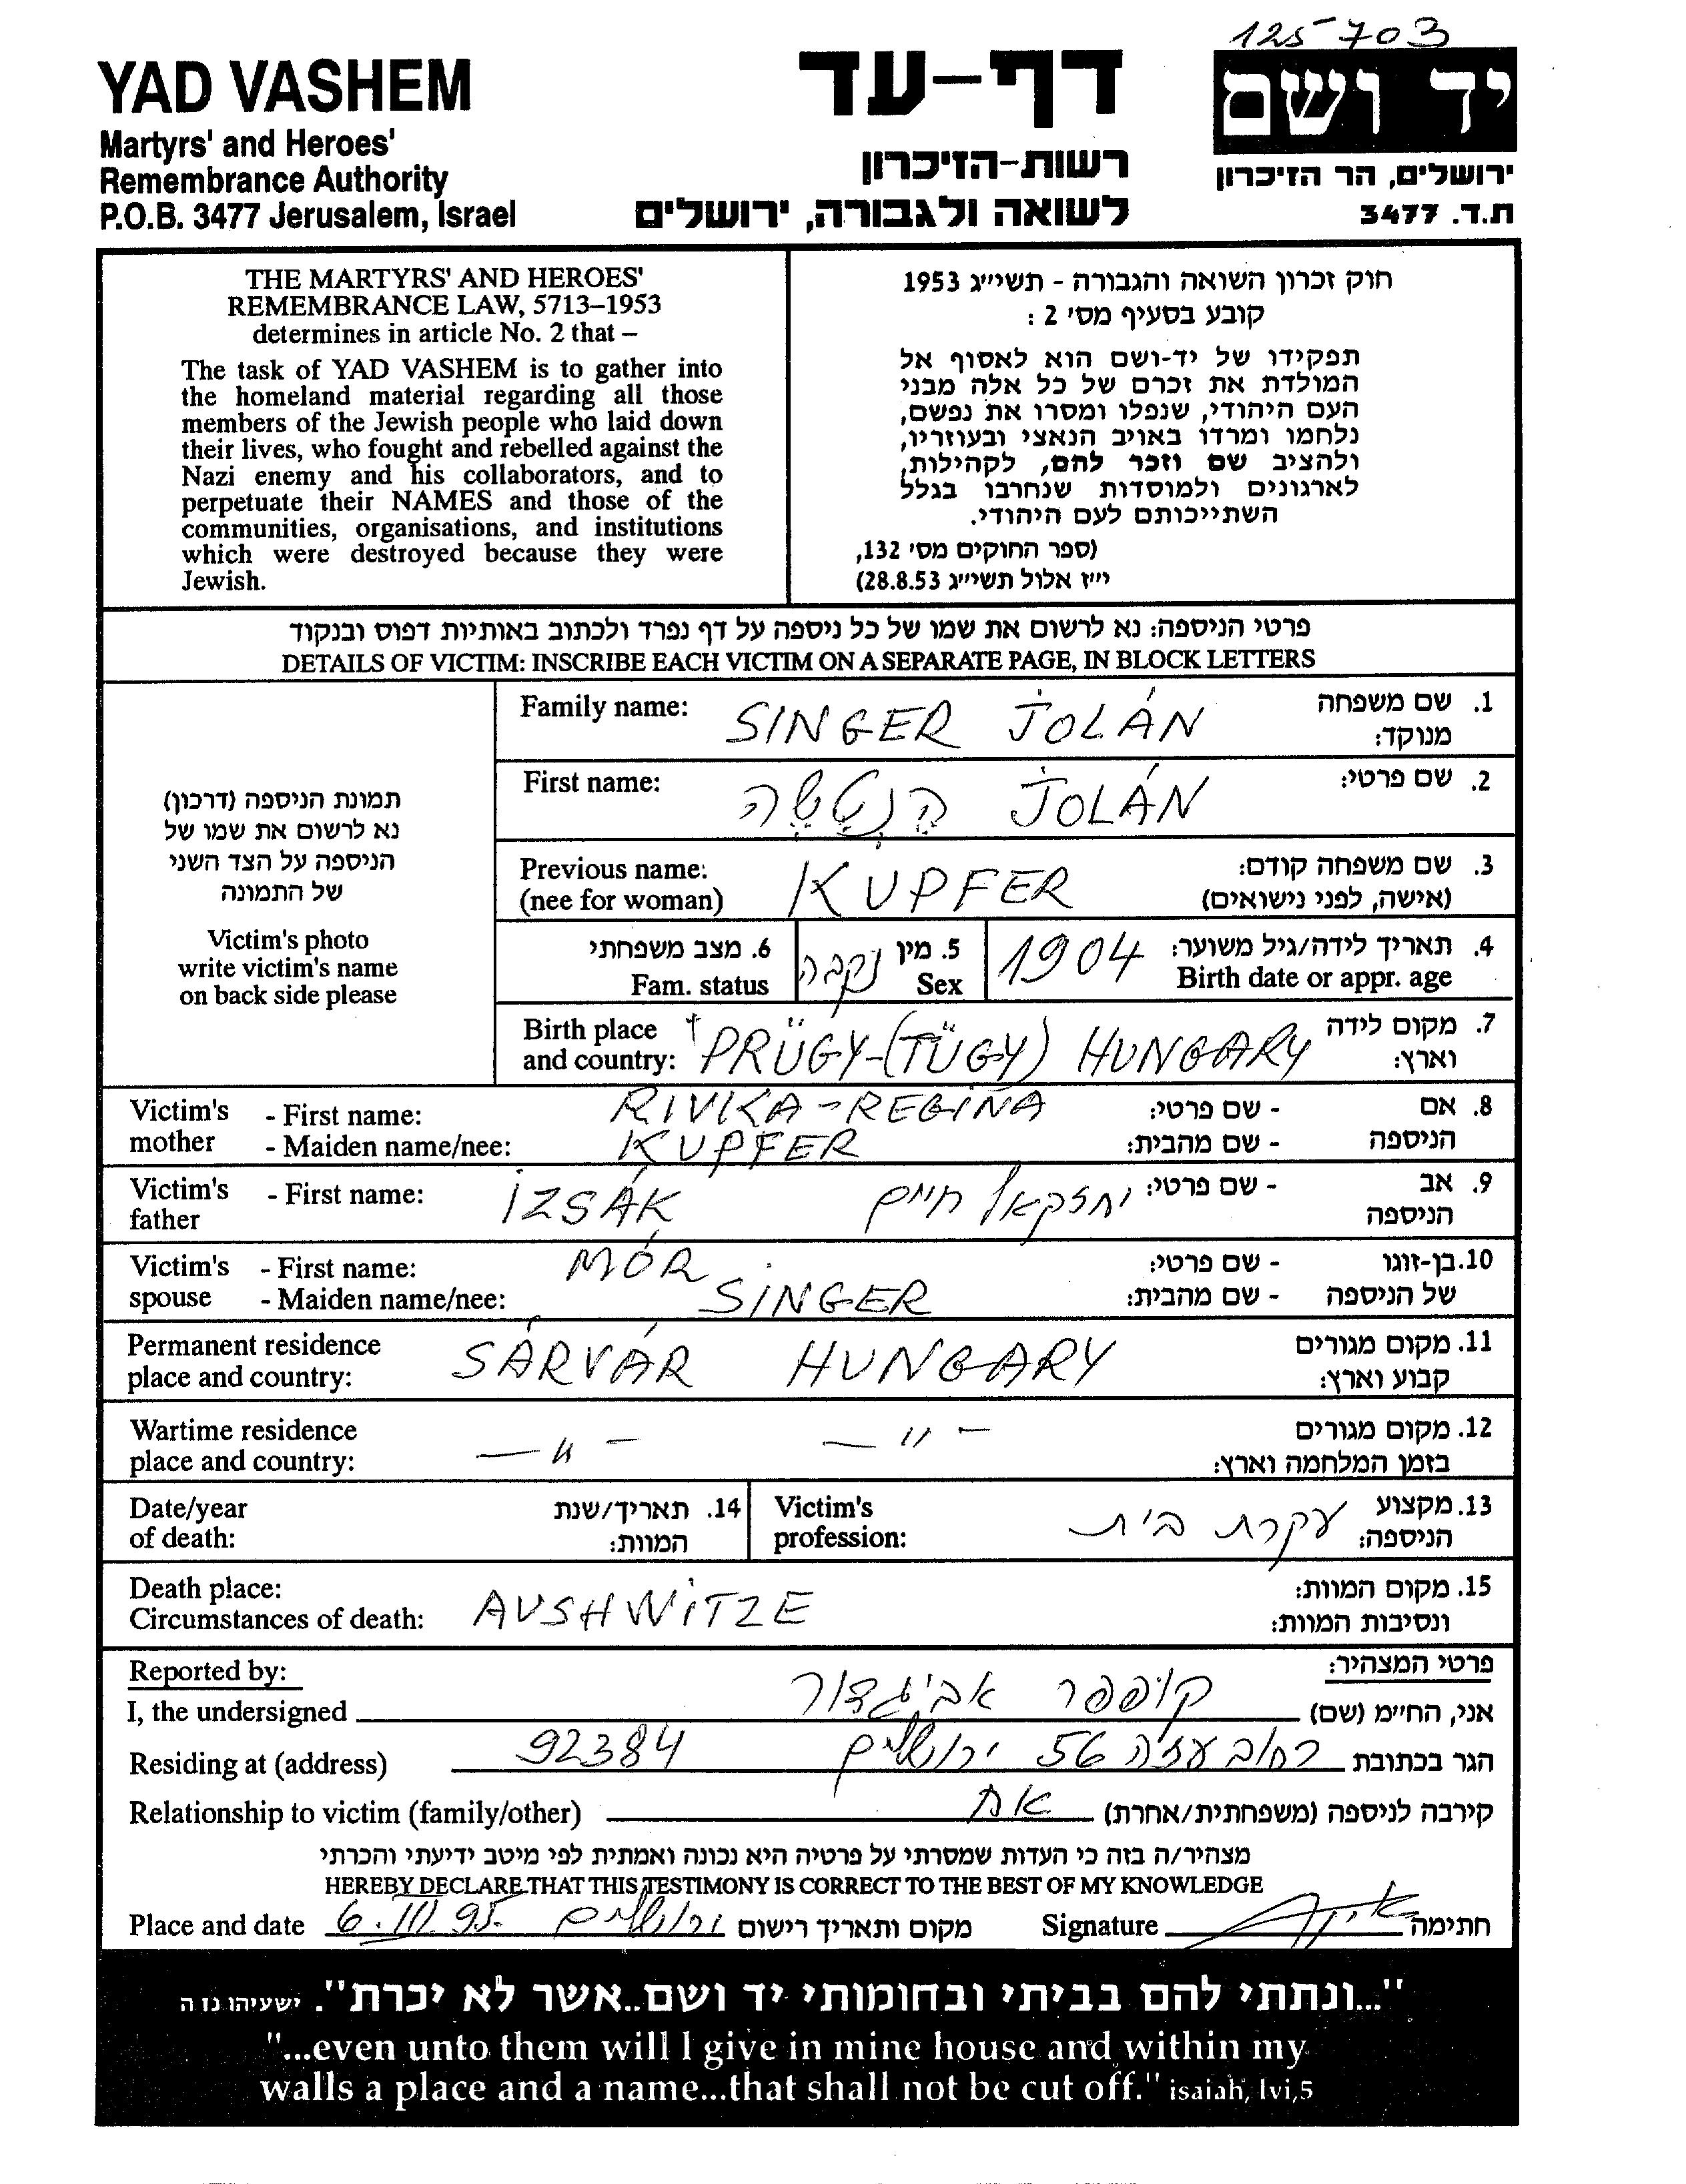 125703
YAD VASHEM
Martyrs' and Heroes'
Remembrance Authority
P.O.B. 3477 Jerusalem, Israel
דף-עד
רשות-הזיכרון
לשואה ולגבורה, ירושלים
יד ושם
ירושלים, הר הזיכרון
ת.ד. 3477
THE MARTYRS' AND HEROES'
REMEMBRANCE LAW, 5713–1953
determines in article No. 2 that –
The task of YAD VASHEM is to gather into
the homeland material regarding all those
members of the Jewish people who laid down
their lives, who fought and rebelled against the
Nazi enemy and his collaborators, and to
perpetuate their NAMES and those of the
communities, organisations, and institutions
which were destroyed because they were
Jewish.
חוק זכרון השואה והגבורה - תשי״ג 1953
קובע בסעיף מס׳ 2 :
תפקידו של יד-ושם הוא לאסוף אל
המולדת את זכרם של כל אלה מבני
העם היהודי, שנפלו ומסרו את נפשם,
נלחמו ומרדו באויב הנאצי ובעוזריו,
ולהציב שם וזכר להם, לקהילות,
לארגונים ולמוסדות שנחרבו בגלל
השתייכותם לעם היהודי.
(ספר החוקים מס׳ 132,
י״ז אלול תשי״ג 28.8.53)
פרטי הניספה: נא לרשום את שמו של כל ניספה על דף נפרד ולכתוב באותיות דפוס ובנקוד
DETAILS OF VICTIM: INSCRIBE EACH VICTIM ON A SEPARATE PAGE, IN BLOCK LETTERS
תמונת הניספה (דרכון)
נא לרשום את שמו של
הניספה על הצד השני
של התמונה
Victim's photo
write victim's name
on back side please
Family name: SINGER JOLÁN 1. שם משפחה
מנוקד:
First name: הֶנְטְשֶׁה JOLÁN 2. שם פרטי:
Previous name: KUPFER 3. שם משפחה קודם:
(nee for woman) (אישה, לפני נישואים)
6. מצב משפחתי 5. מין נקבה 1904 4. תאריך לידה/גיל משוער:
Fam. status Sex Birth date or appr. age
Birth place PRÜGY-(TÜGY) HUNGARY 7. מקום לידה
and country: וארץ:
Victim's - First name: RIVKA-REGINA - שם פרטי: 8. אם
mother - Maiden name/nee: KUPFER - שם מהבית: הניספה
Victim's - First name: IZSÁK יחזקאל חיים - שם פרטי: 9. אב
father הניספה
Victim's - First name: MÓR - שם פרטי: 10. בן-זוגו
spouse - Maiden name/nee: SINGER - שם מהבית: של הניספה
Permanent residence SÁRVÁR HUNGARY 11. מקום מגורים
place and country: קבוע וארץ:
Wartime residence — " — — " — 12. מקום מגורים
place and country: בזמן המלחמה וארץ:
Date/year 14. תאריך/שנת Victim's עקרת בית 13. מקצוע
of death: המוות: profession: הניספה:
Death place: AUSHWITZE 15. מקום המוות:
Circumstances of death: ונסיבות המוות:
Reported by: פרטי המצהיר:
I, the undersigned קופפר אביגדור אני, החי״מ (שם)
Residing at (address) 92384 רחוב עזה 56 ירושלים הגר בכתובת
Relationship to victim (family/other) אח קירבה לניספה (משפחתית/אחרת)
מצהיר/ה בזה כי העדות שמסרתי על פרטיה היא נכונה ואמתית לפי מיטב ידיעתי והכרתי
HEREBY DECLARE THAT THIS TESTIMONY IS CORRECT TO THE BEST OF MY KNOWLEDGE
Place and date 6.III.95. ירושלים מקום ותאריך רישום Signature חתימה
"...ונתתי להם בביתי ובחומותי יד ושם..אשר לא יכרת". ישעיהו נו ה
"...even unto them will I give in mine house and within my
walls a place and a name...that shall not be cut off." isaiah, lvi,5